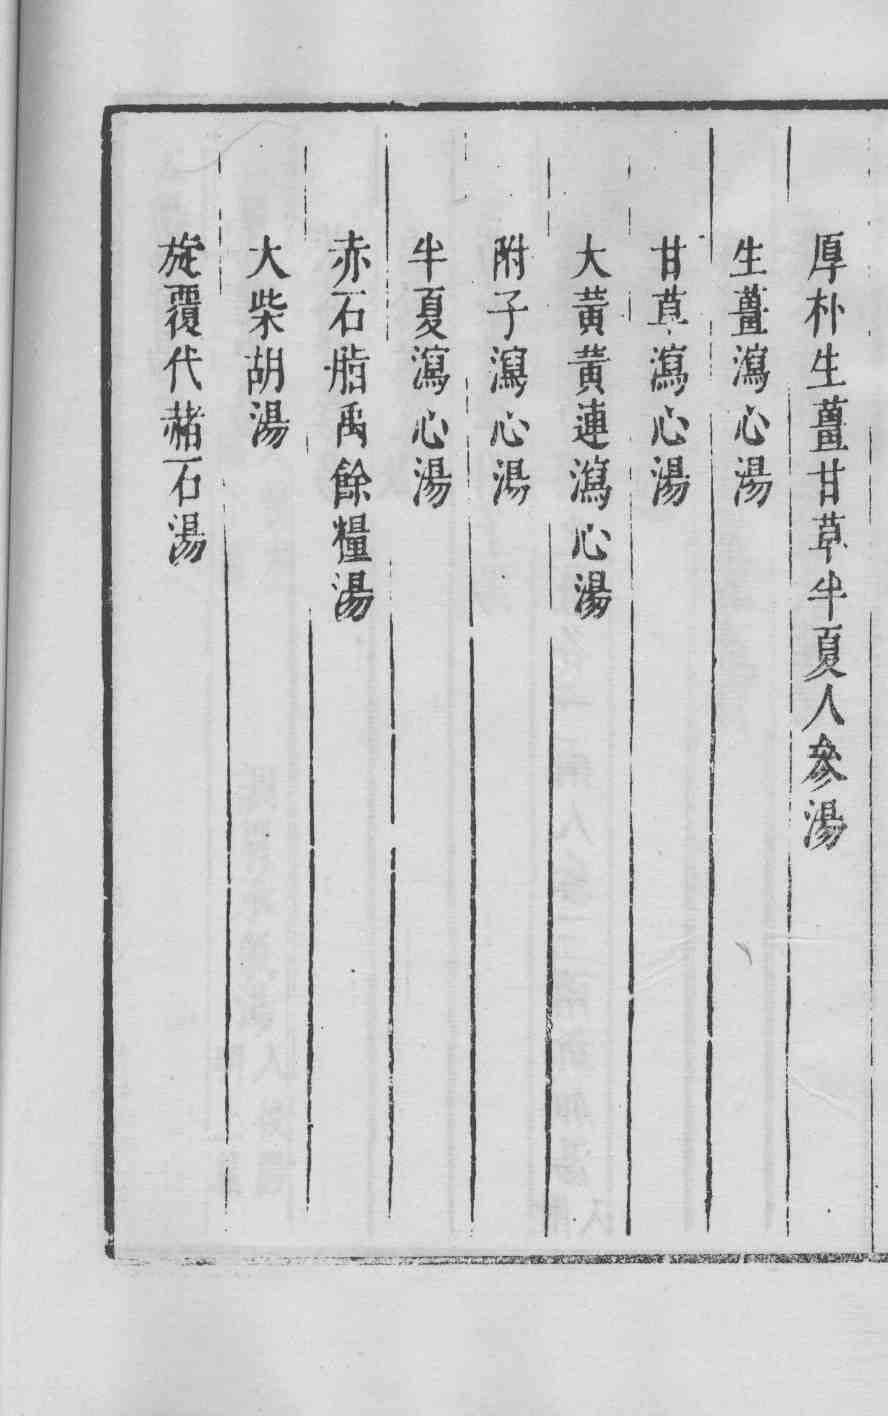 厚朴生薑甘草半夏人參湯
生薑瀉心湯
甘草瀉心湯
大黃黃連瀉心湯
附子瀉心湯
半夏瀉心湯
赤石脂禹餘糧湯
大柴胡湯
旋覆代赭石湯